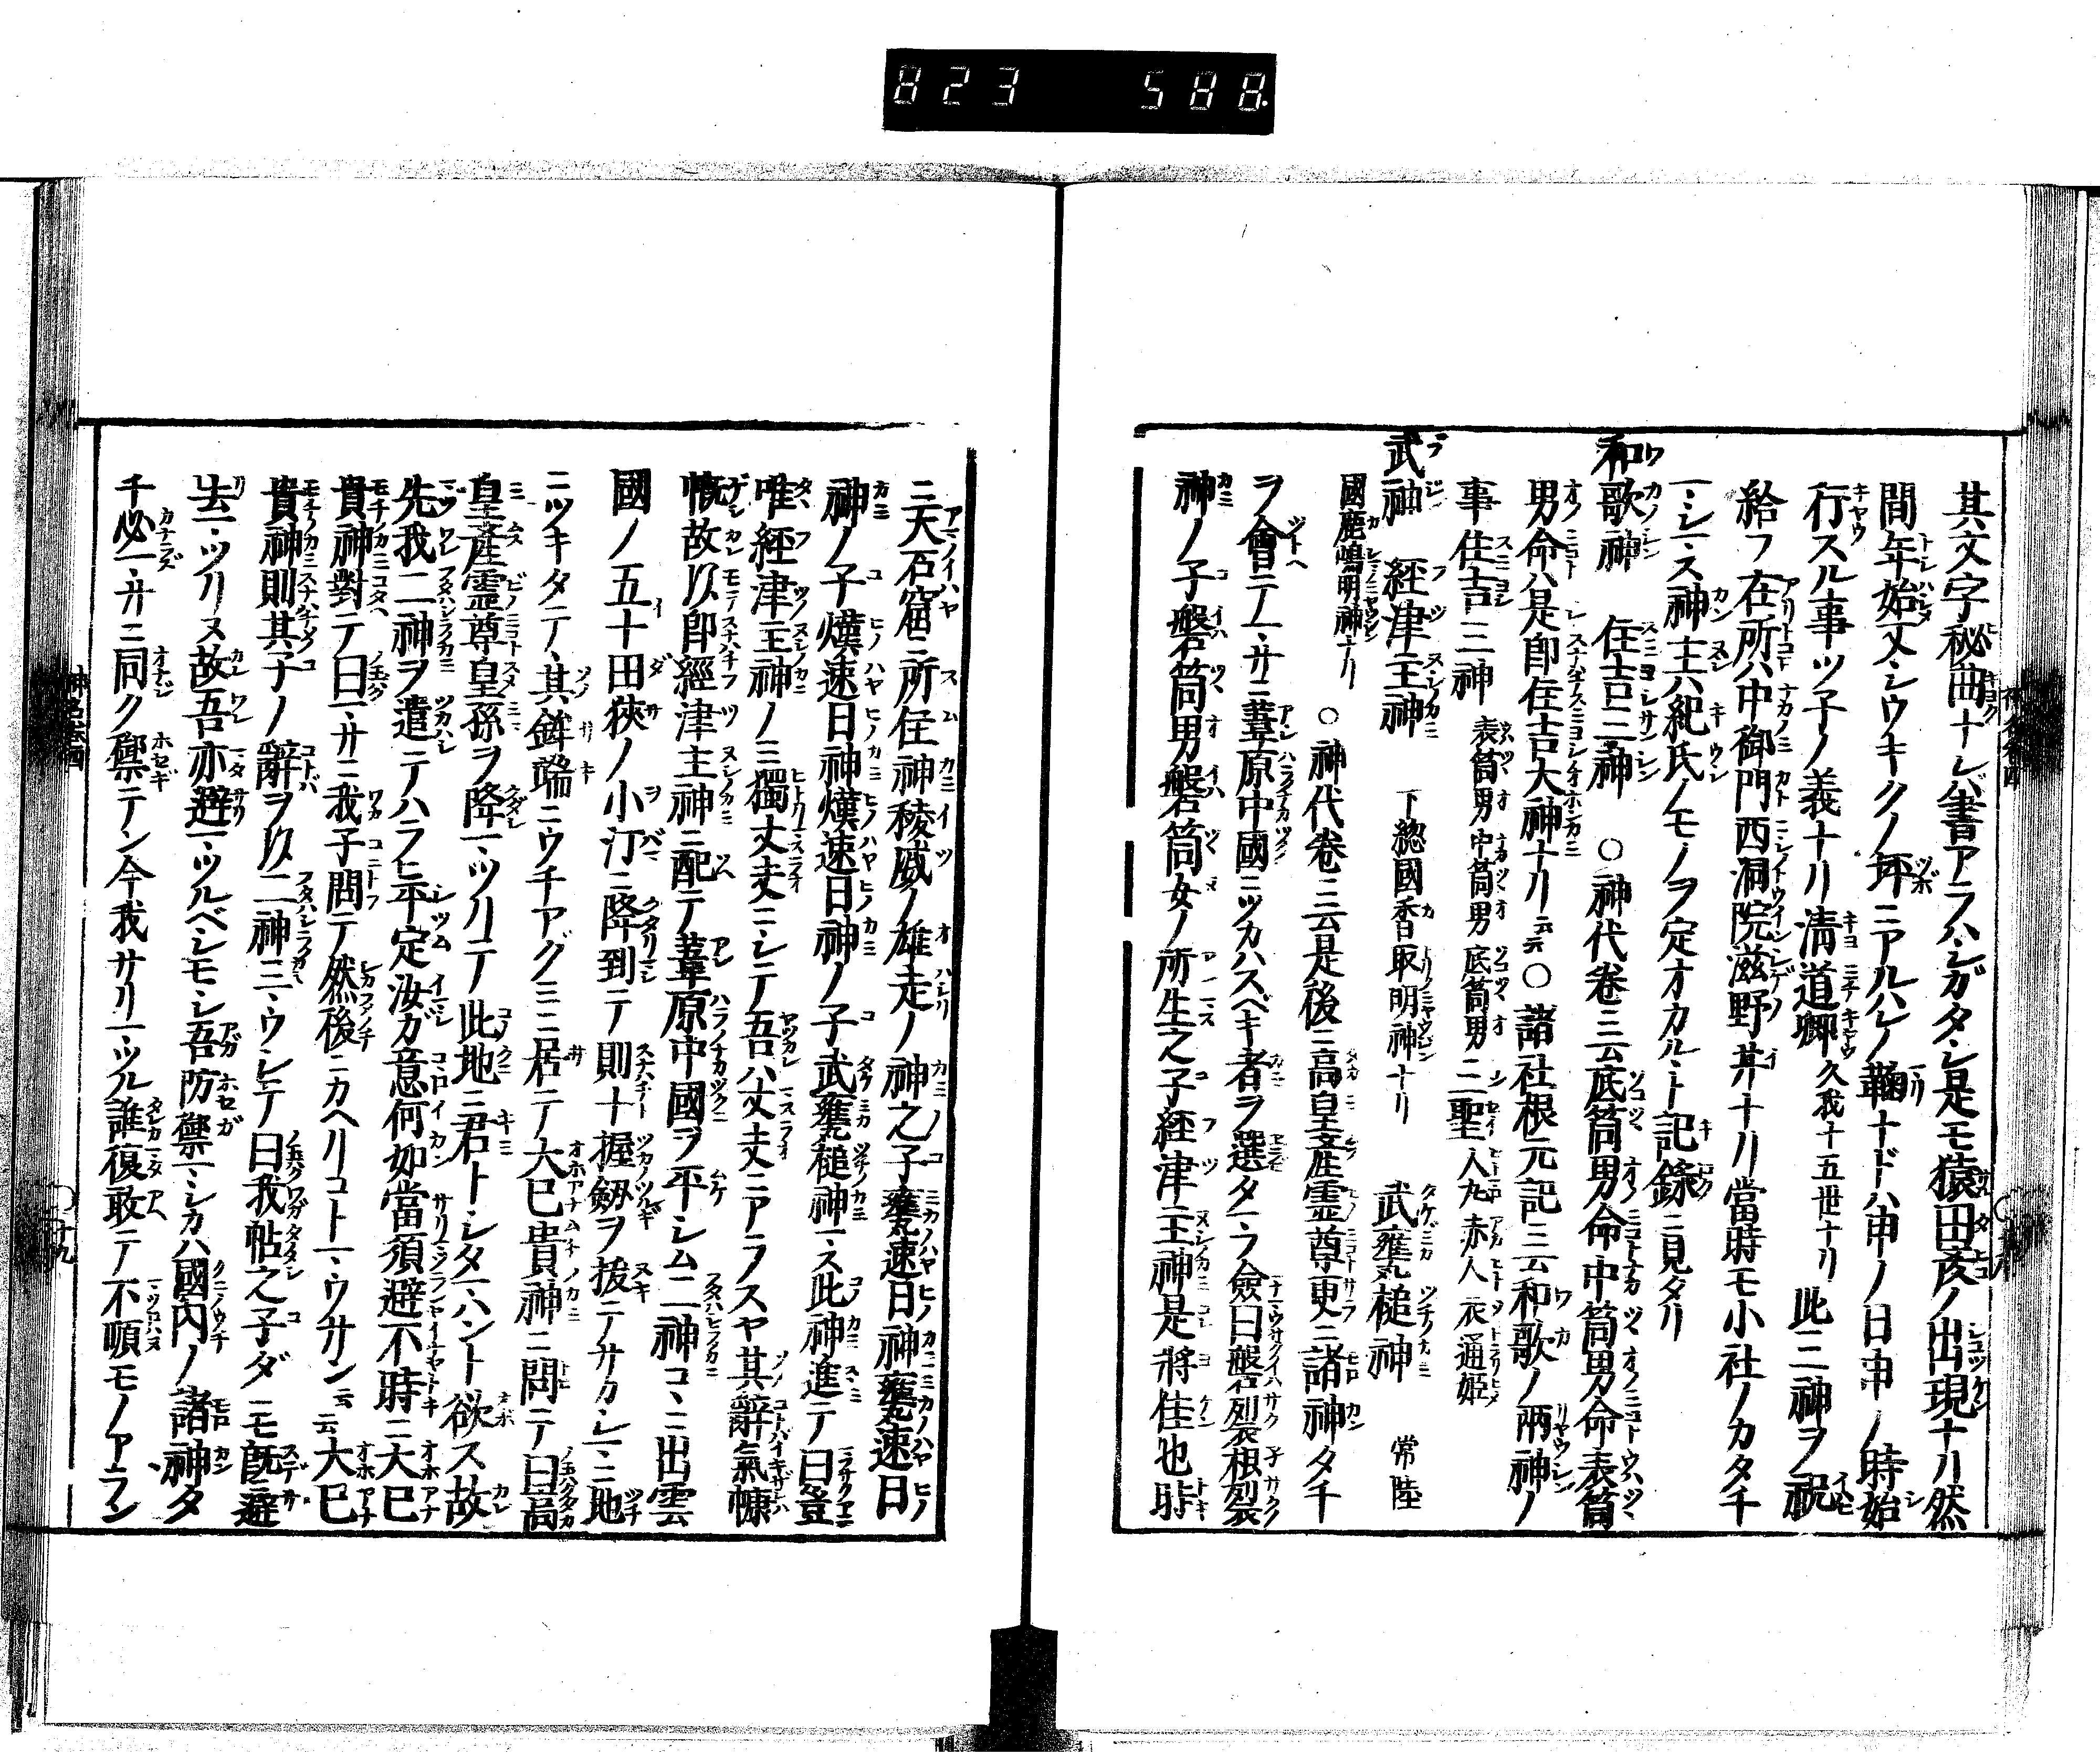 823 588
其文字秘曲ナレバ書アラハシガタシ是モ猿田彦ノ出現ナリ然
間年始又シウキクノ坪ニアルハレノ鞠ナドハ申ノ日申ノ時始
行スル事ツ子ノ義ナリ清道卿久我十五世ナリ此三神ヲ祝
給フ在所ハ中御門西洞院滋野井ナリ當時モ小社ノカタチ
マシマス神主ハ紀氏ノモノヲ定オカルト記録ニ見タリ
和歌神 住吉三神 ○神代卷ニ云底筒男命中筒男命表筒
男命ハ是即住吉大神ナリ云云○諸社根元記ニ云和歌ノ兩神ノ
事住吉三神 表筒男中筒男底筒男 三聖 人丸赤人衣通姫
武神 經津主神 下総國香取明神ナリ 武甕槌神 常陸
國鹿嶋明神ナリ ○神代卷ニ云是後ニ高皇産霊尊更ニ諸神タチ
ヲ會テマサニ葦原中國ニツカハスベキ者ヲ選タマフ僉曰磐裂根裂
神ノ子磐筒男磐筒女ノ所生之子経津主神是將佳也時
ニ天石窟ニ所住神稜威ノ雄走ノ神之子甕速日神甕速日
神ノ子熯速日神熯速日神ノ子武甕槌神マス此神進テ曰豈
唯経津主神ノミ獨丈夫ニシテ吾ハ丈夫ニアラスヤ其辭氣慷
慨故以即經津主神ニ配テ葦原中國ヲ平シム二神コヽニ出雲
國ノ五十田狹ノ小汀ニ降到テ則十握劔ヲ抜テサカシマニ地
ニツキタテヽ其鉾端ニウチアグミニ居テ大巳貴神ニ問テ曰高
皇産霊尊皇孫ヲ降マツリテ此地ニ君トシタマハント欲ス故
先我二神ヲ遣テハラヒ平定汝ガ意何如當須避不時ニ大巳
貴神對テ曰マサニ我子問テ然後ニカヘリコトマウサン云云大巳
貴神則其子ノ辭ヲ以二神ニマウシテ曰我怙之子ダニモ既ニ避
去マツリヌ故吾亦避マツルベシモシ吾防禦マシカハ國内ノ諸神タ
チ必マサニ同ク禦テン今我サリマツル誰復敢テ不順モノアラン
神名卷四